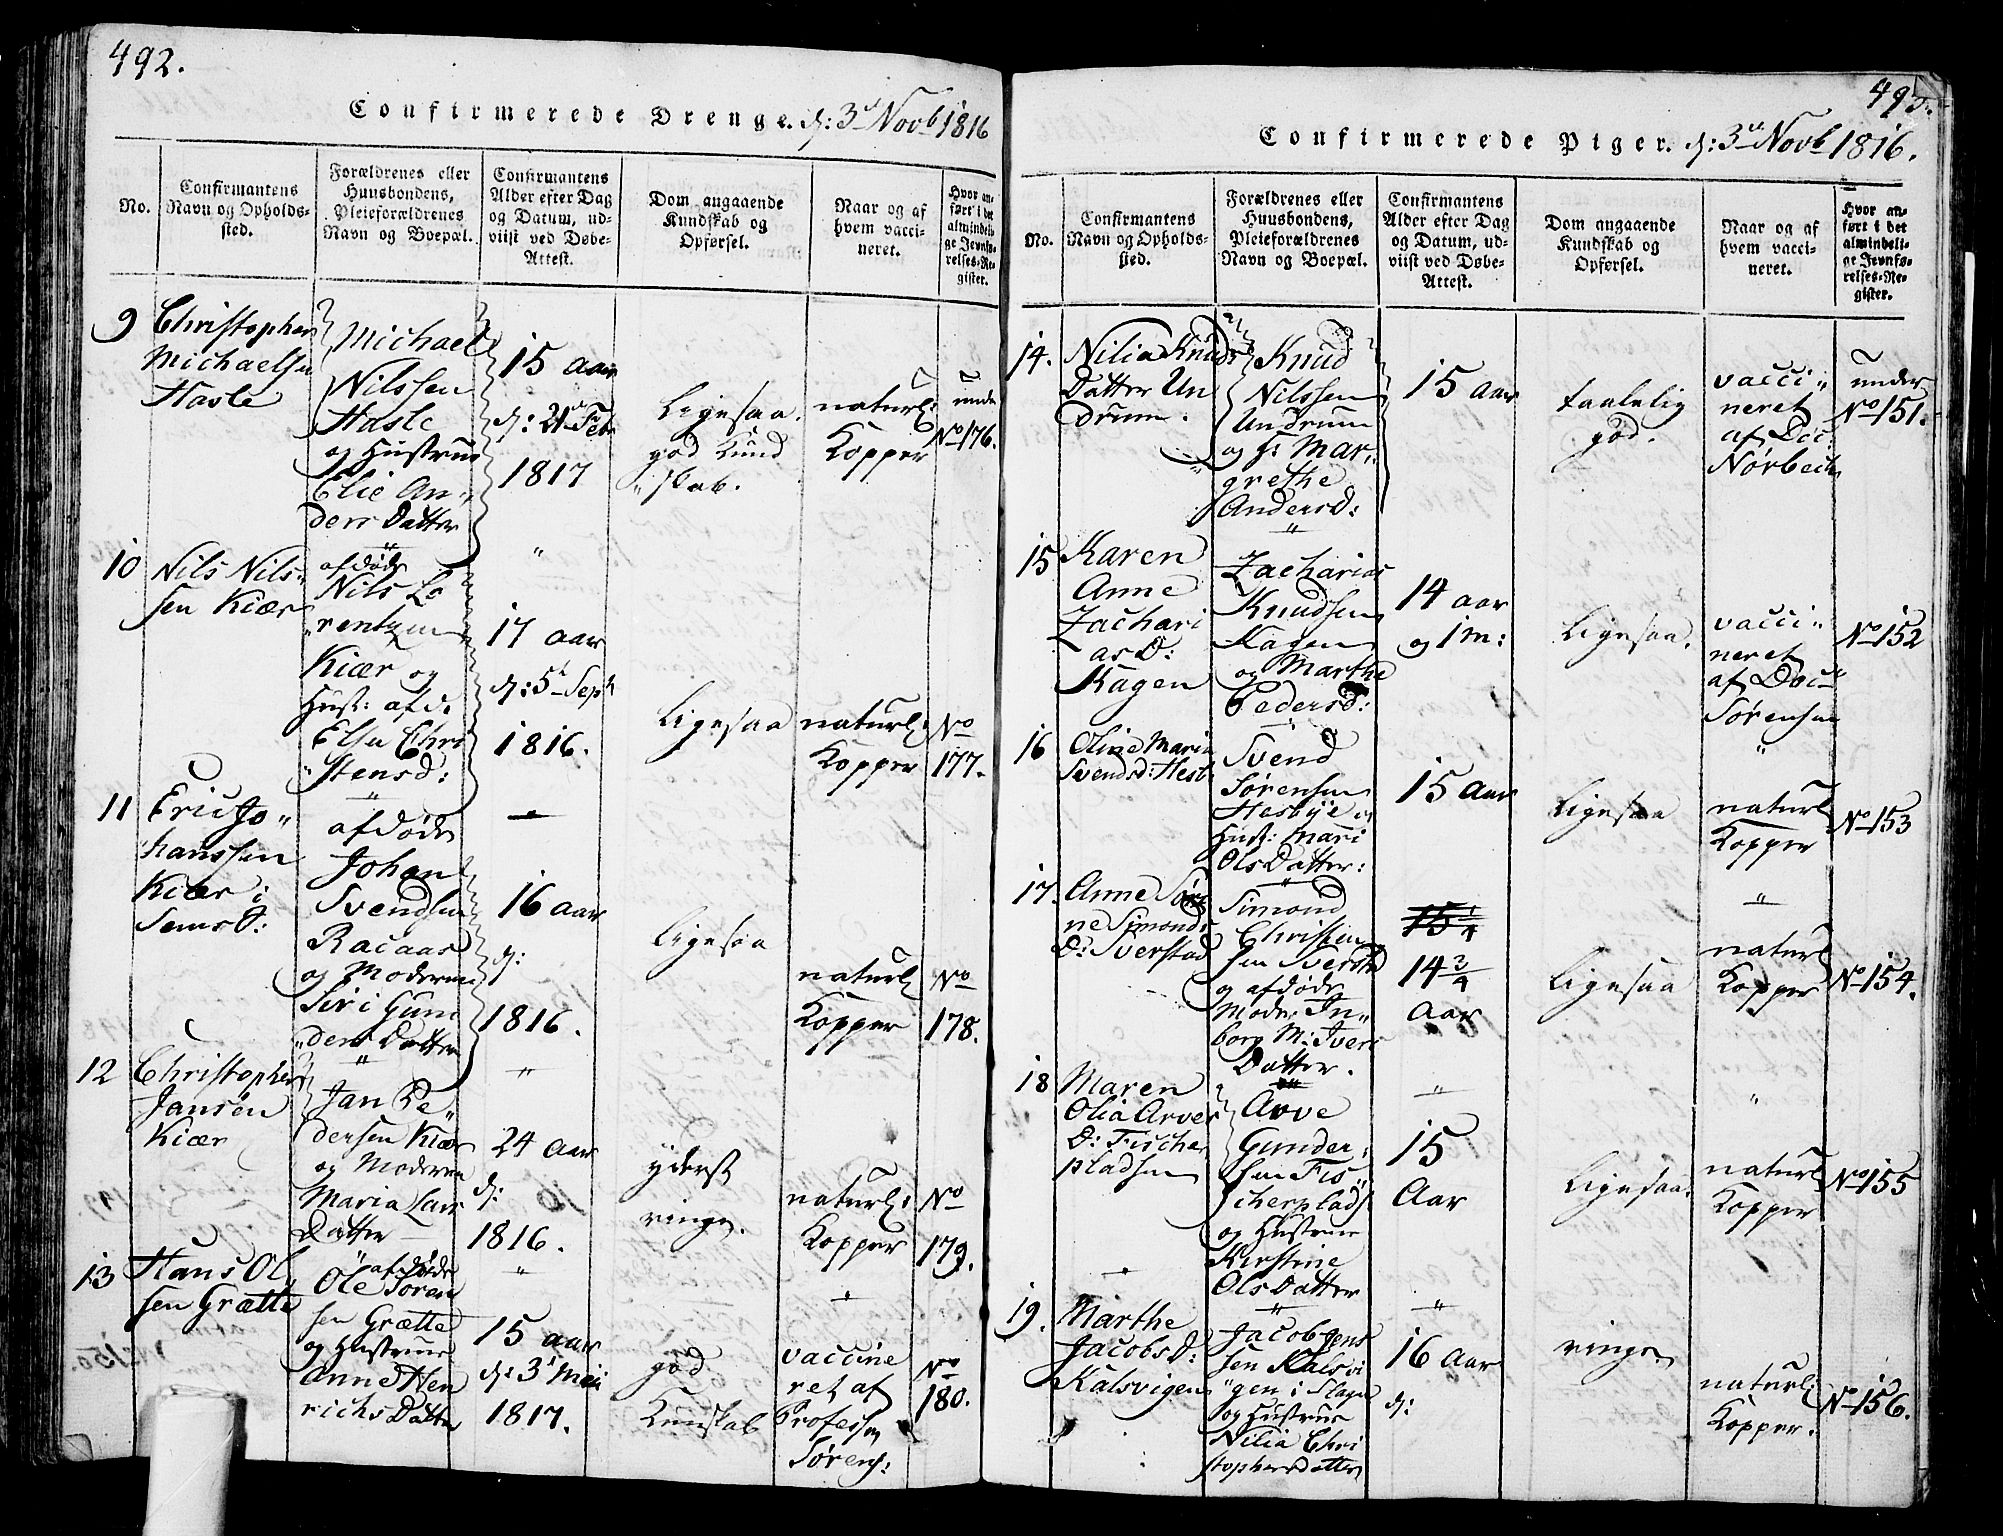 492.
Confirmerede Drenge. d: 3d Novb 1816
No.
Confirmantens
Navn og Opholds-
sted.
Forældrenes eller
Huusbondens,
Pleieforældrenes
Navn og Boepæl.
Confirmantens
Alder efter Dag
og Datum, ud-
viist ved Døbe-
Attest.
Dom angaaende
Kundskab og
Opførsel.
Naar og af
hvem vacci-
neret.
Hvor an-
ført i det
almindeli-
ge Jevnfø-
relses-Re-
gister.
9
Christopher
Michaelsen
Hasle
Michael
Nilssen
Hasle
og Hustrue
Elie An-
ders Datter
15 aar
d: 21d Febr
1817
Ligesaa
god Kund
skab.
naturl:
Kopper
under
No 176.
10
Nils Nils-
sen Kiær
afdøde
Nils Lo
rentzen
Kiær og
Hust: afd.
Else Chri
stensd:
17 aar
d: 5d Sept
1816.
Ligesaa
naturl:
Kopper
No
177.
11
Eric Jo-
hanssen
Kiær i
Sems S:
afdøde
Johan
Svendsen
Racaas
og Moderen
Siri Gun
ders Datter
16 aar
d:
1816.
Ligesaa
naturl
Kopper
No
178.
12
Christopher
Jansen
Kiær
Jan Pe-
dersen Kiær
og Moderen
Maria Lars
Datter
24 aar
d:
1816.
yderst
ringe.
naturl:
Kopper
No
179.
13
Hans Ol
sen Grætte
afdøde
Ole Soren
sen Grætte
og Hustrue
Anne Hen
richs Datter
15 aar
d: 3d Mai
1817.
god
Kunskab
vaccine
ret af
Professor
Sørens:
No
180.
493.
Confirmerede Piger. d: 3d Novb 1816.
No.
Confirmantens
Navn og Opholds-
sted.
Forældrenes eller
Huusbondens,
Pleieforældrenes
Navn og Boepæl.
Confirmantens
Alder efter Dag
og Datum, ud-
viist ved Døbe-
Attest.
Dom angaaende
Kundskab og
Opførsel.
Naar og af
hvem vacci-
neret.
Hvor an-
ført i det
almindeli-
ge Jevnfø-
relses-Re-
gister.
14.
Nilia Knuds
Datter Un
drum.
Knud
Nilssen
Undrum
og H: Mar-
grethe
Andersd:
15 aar
taalelig
god.
vacci-
neret
af Doc:
Nørbech
under
No 151.
15
Karen
Anne
Zachari
as D:
Kagen
Zacharias
Knudsen
Kagen
og Marthe
Pedersd:
14 aar
og 1 m:
Ligesaa.
vacci-
neret
af Doc
Sørensen
No 152
16
Oline Maria
Svendsd: Hesb
Svend
Sørensen
Hesbye og
Hust: Mari
Ols Datter:
15 aar
Ligesaa
naturl
Kopper
No 153
17.
Anne Sør
ne Simonds
D: Sverstad
Simond
Christen
sen Sverstad
og afdøde
Moder In-
borg M: Ivers
Datter.
15 1/4
14 3/4
Aar
Ligesaa
naturl
Kopper
No 154.
18
Maren
Olia Arves
D: Fischer
pladsen
Arve
Gunder-
sen Fis
cherplads
og Hustrue
Kirstine
Ols Datter
15
Aar
Ligesaa.
naturl
Kopper
No 155
19.
Marthe
Jacobs D:
Kalsvigen
Jacob Jens
sen Kalsvi
gen i Slagen
og Hustrue
Nilia Chri
stophersdatter
16 aar
d:
ringe.
naturl:
Kopper.
No 156.